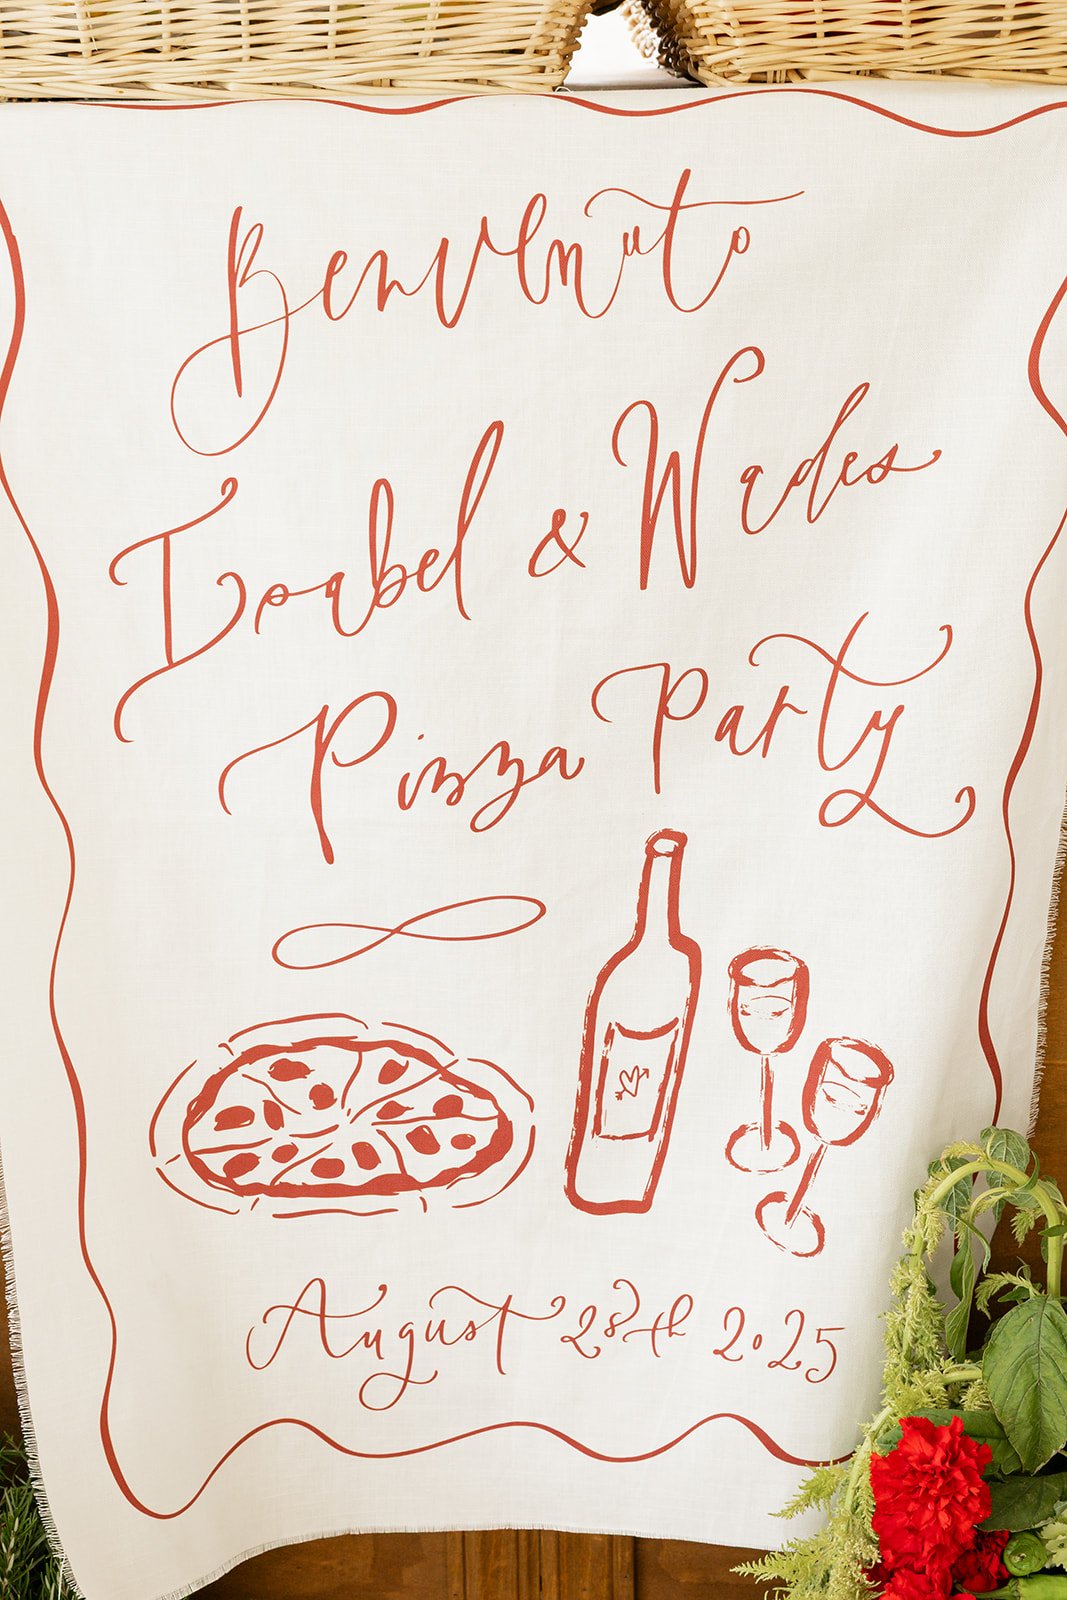 Benvenuto
Isabel & Wades
Pizza Party
August 28th 2025